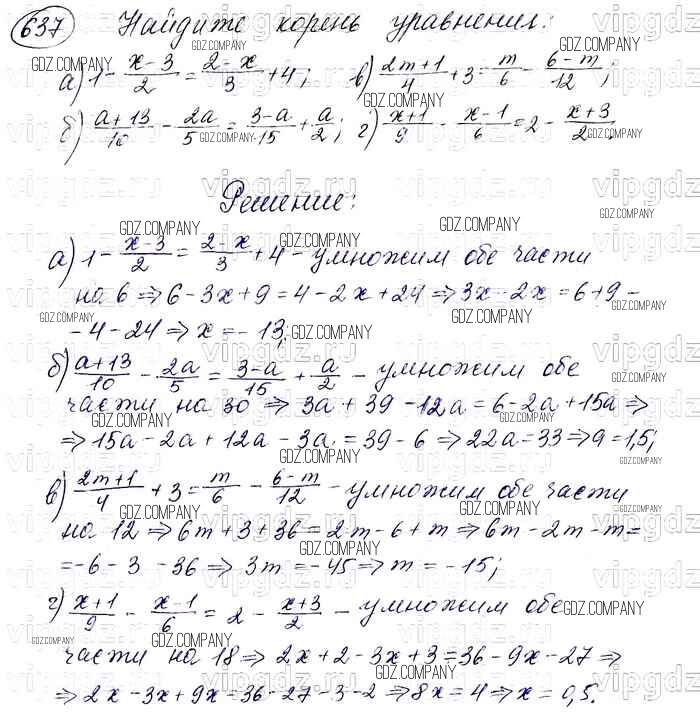 637 Найдите корень уравнения:
а) 1 - (x-3)/2 = (2-x)/3 + 4; в) (2m+1)/4 + 3 = m/6 - (6-m)/12;
б) (a+13)/10 - 2a/5 = (3-a)/15 + a/2; г) (x+1)/9 - (x-1)/6 = 2 - (x+3)/2;
Решение:
а) 1 - (x-3)/2 = (2-x)/3 + 4 - умножим обе части
на 6 ⇒ 6 - 3x + 9 = 4 - 2x + 24 ⇒ 3x - 2x = 6 + 9 -
- 4 - 24 ⇒ x = - 13;
б) (a+13)/10 - 2a/5 = (3-a)/15 + a/2 - умножим обе
части на 30 ⇒ 3a + 39 - 12a = 6 - 2a + 15a ⇒
⇒ 15a - 2a + 12a - 3a = 39 - 6 ⇒ 22a = 33 ⇒ 9 = 1,5;
в) (2m+1)/4 + 3 = m/6 - (6-m)/12 - умножим обе части
на 12 ⇒ 6m + 3 + 36 = 2m - 6 + m ⇒ 6m - 2m - m =
= -6 - 3 - 36 ⇒ 3m = -45 ⇒ m = -15;
г) (x+1)/9 - (x-1)/6 = 2 - (x+3)/2 - умножим обе
части на 18 ⇒ 2x + 2 - 3x + 3 = 36 - 9x - 27 ⇒
⇒ 2x - 3x + 9x = 36 - 27 - 3 - 2 ⇒ 8x = 4 ⇒ x = 0,5.
GDZ.COMPANY
vipgdz.ru